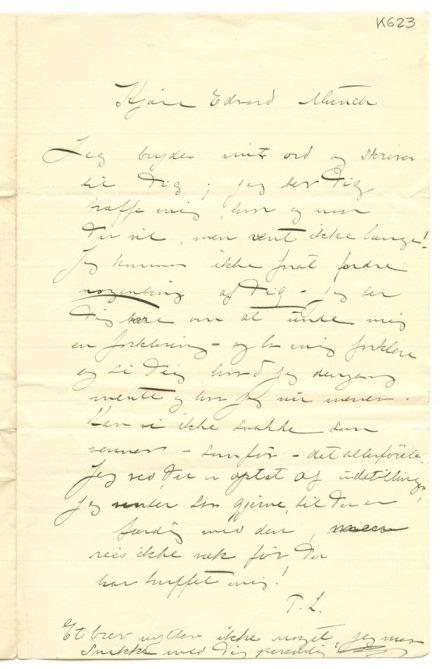 K623
Kjære Edvard Munch
Jeg bryder mit ord og skriver
til Dig, jeg ber Dig
træffe mig, hvor og naar
Du vil, men vent ikke længe!
Jeg kommer ikke for at fordre
nogenting af Dig – jeg ber
Dig bare om at unde mig
en forklaring – og la mig forklare
og si Dig hvad jeg dengang
mente og hvad jeg nu mener.
Kan vi ikke snakke som
venner – som før – det allerførste.
Jeg ved Du er optat af udstillinge,
jeg venter saa gjerne, til Du er
færdig med den,
reis ikke væk før Du
har truffet mig!
T. L.
Et brev nytter ikke noget, jeg maa
snakke med Dig personlig!